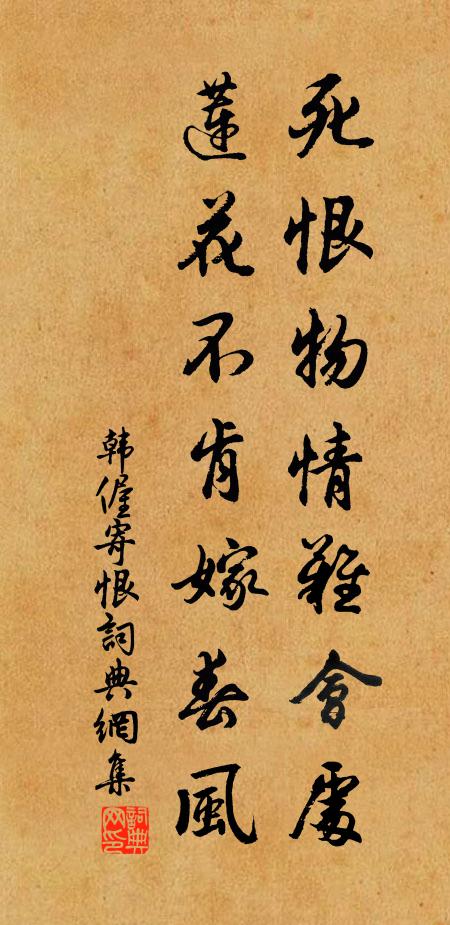 死恨物情難會處
蓮花不肯嫁春風
韩偓寄恨詞典網集
詞典网印